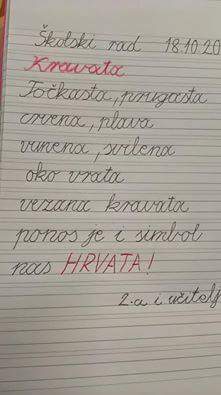 Školski rad 18.10.20
Kravata
Točkasta, prugasta
crvena, plava
vunena, svilena
oko vrata
vezana kravata
ponos je i simbol
nas HRVATA!
2.a i učitelj